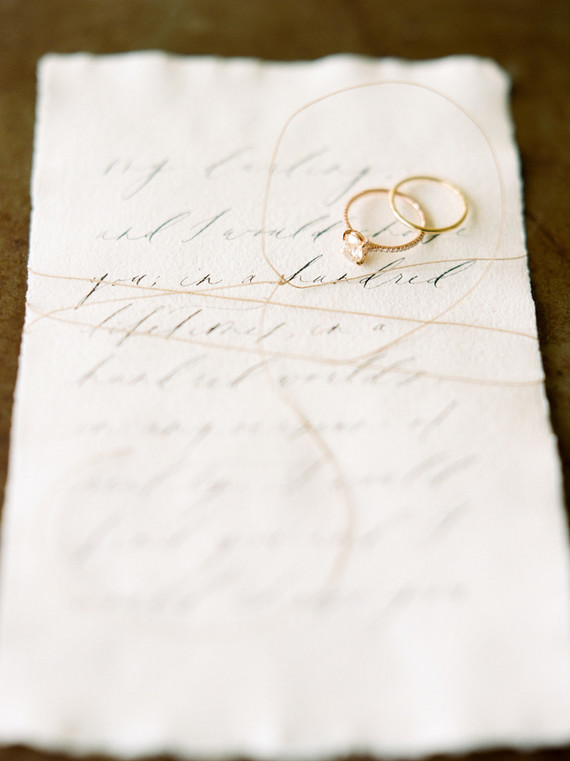 my darling,
and I would choose
you; in a hundred
lifetimes, in a
hundred worlds,
in any version of
I would
find you and I
would choose you